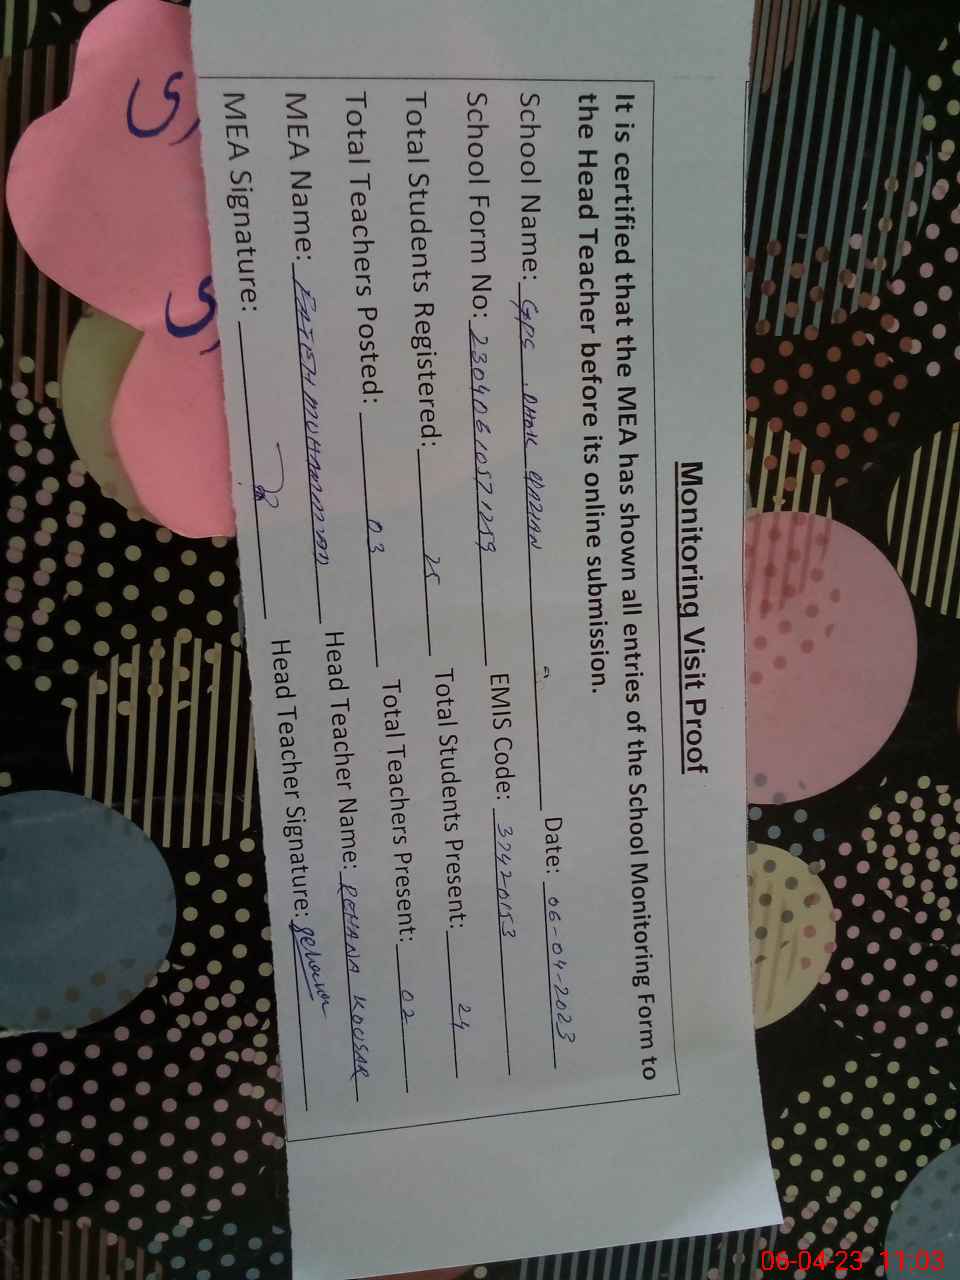 Monitoring Visit Proof
It is certified that the MEA has shown all entries of the School Monitoring Form to
the Head Teacher before its online submission.
School Name: GPS DHOK QAZIAN Date: 06-04-2023
School Form No: 23040610571259 EMIS Code: 37420153
Total Students Registered: 25 Total Students Present: 24
Total Teachers Posted: 03 Total Teachers Present: 02
MEA Name: FATEH MUHAMMAD Head Teacher Name: REHANA KOUSAR
MEA Signature: Head Teacher Signature:
06-04-23 11:03